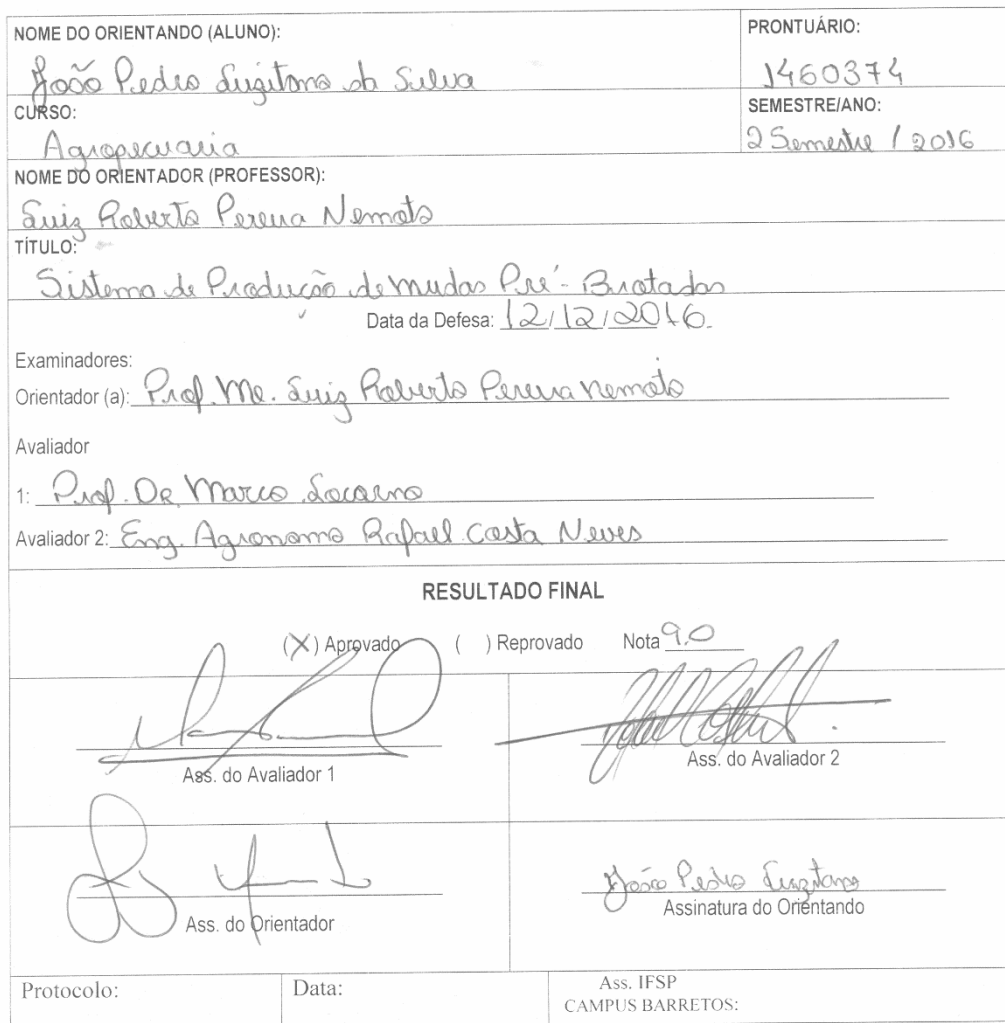 NOME DO ORIENTANDO (ALUNO):
João Pedro Luzitano da Silva
PRONTUÁRIO:
1460374
CURSO:
Agropecuaria
SEMESTRE/ANO:
2 Semestre / 2016
NOME DO ORIENTADOR (PROFESSOR):
Luiz Roberto Pereira Nemoto
TÍTULO:
Sistema de Produção de Mudas Pré-Brotadas
Data da Defesa: 12/12/2016.
Examinadores:
Orientador (a): Prof. Me. Luiz Roberto Pereira Nemoto
Avaliador
1: Prof. DR Marco Locarno
Avaliador 2: Eng. Agronomo Rafael Costa Neves
RESULTADO FINAL
(X) Aprovado ( ) Reprovado Nota 9.0
Ass. do Avaliador 1
Ass. do Avaliador 2
João Pedro Luzitano
Ass. do Orientador
Assinatura do Orientando
Protocolo:
Data:
Ass. IFSP
CAMPUS BARRETOS: